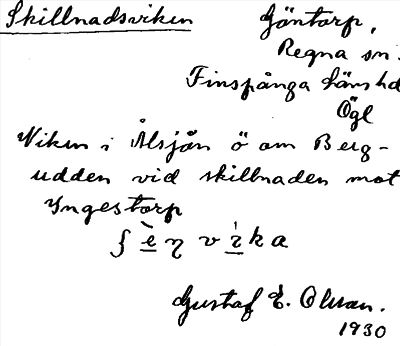 Skillnadsviken Göntorp,
Regna sn.
Finspånga läns hd
Ögl
Viken i Ålsjön ö om Berg-
udden vid skillnaden mot
Yngestorp
ʃ è η v ı̀ k a
Gustaf E. Olsson.
1930